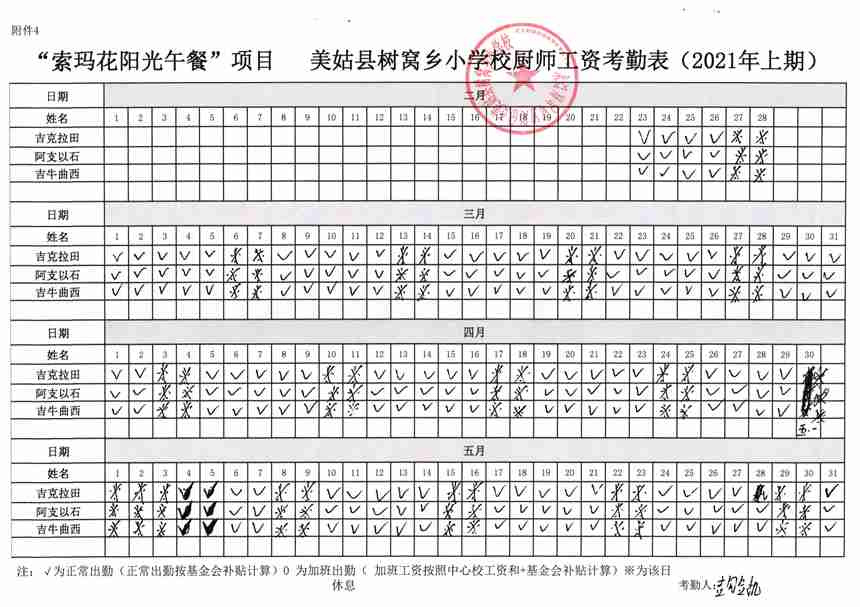 附件4
“索玛花阳光午餐”项目 美姑县树窝乡小学校厨师工资考勤表（2021年上期）
日期 二月
姓名 1 2 3 4 5 6 7 8 9 10 11 12 13 14 15 16 17 18 19 20 21 22 23 24 25 26 27 28
吉克拉田 √ √ √ √ ※ ※
阿支以石 √ √ √ √ ※ ※
吉牛曲西 √ √ √ √ ※ ※
日期 三月
姓名 1 2 3 4 5 6 7 8 9 10 11 12 13 14 15 16 17 18 19 20 21 22 23 24 25 26 27 28 29 30 31
吉克拉田 √ √ √ √ √ ※ ※ √ √ √ √ √ ※ ※ √ √ √ √ √ ※ ※ √ √ √ √ √ ※ ※ √ √ √
阿支以石 √ √ √ √ √ ※ ※ √ √ √ √ √ ※ ※ √ √ √ √ √ ※ ※ √ √ √ √ √ ※ ※ √ √ √
吉牛曲西 √ √ √ √ √ ※ ※ √ √ √ √ √ ※ ※ √ √ √ √ √ ※ ※ √ √ √ √ √ ※ ※ √ √ √
日期 四月
姓名 1 2 3 4 5 6 7 8 9 10 11 12 13 14 15 16 17 18 19 20 21 22 23 24 25 26 27 28 29 30
吉克拉田 √ √ ※ ※ √ √ √ √ √ ※ ※ √ √ √ √ √ ※ ※ √ √ √ √ √ ※ ※ √ √ √ √
阿支以石 √ √ ※ ※ √ √ √ √ √ ※ ※ √ √ √ √ √ ※ ※ √ √ √ √ √ ※ ※ √ √ √ √
吉牛曲西 √ √ ※ ※ √ √ √ √ √ ※ ※ √ √ √ √ √ ※ ※ √ √ √ √ √ ※ ※ √ √ √ √
五.一
日期 五月
姓名 1 2 3 4 5 6 7 8 9 10 11 12 13 14 15 16 17 18 19 20 21 22 23 24 25 26 27 28 29 30 31
吉克拉田 ※ ※ ※ √ √ √ √ ※ ※ √ √ √ √ √ ※ ※ √ √ √ √ √ ※ ※ √ √ √ √ √ ※ ※ √
阿支以石 ※ ※ ※ √ √ √ √ ※ ※ √ √ √ √ √ ※ ※ √ √ √ √ √ ※ ※ √ √ √ √ √ ※ ※ √
吉牛曲西 ※ ※ ※ √ √ √ √ ※ ※ √ √ √ √ √ ※ ※ √ √ √ √ √ ※ ※ √ √ √ √ √ ※ ※ √
注： √为正常出勤（正常出勤按基金会补贴计算）0 为加班出勤（ 加班工资按照中心校工资和+基金会补贴计算）※为该日
休息
考勤人: